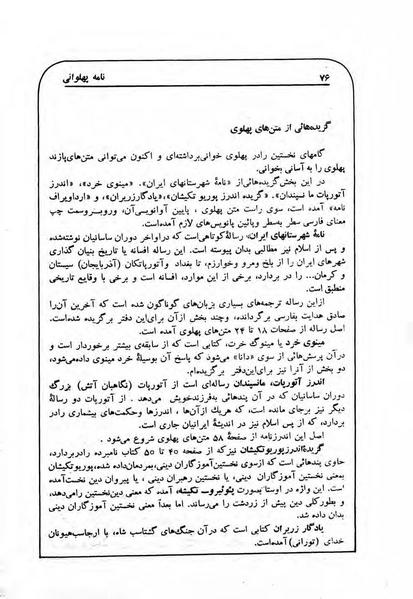 ۷۶ نامه پهلوانی
گزیده‌هائی از متن‌های پهلوی
گامهای نخستین رادر پهلوی خوانی‌برداشته‌ای و اکنون می‌توانی متن‌های‌پازند
پهلوی را به آسانی بخوانی.
در این بخش‌گزیده‌هائی‌از «نامهٔ شهرستانهای ایران»، «مینوی خرد»، «اندرز
آتورپات ما نسپندان». «گزیده اندرز پوریو تکیشان»، «یادگارزریران»، و «ارداویراف
نامه» آمده است، سوی راست متن پهلوی ، پایین آوانویسی‌آن، وروبروسمت چپ
معنای فارسی سطر بسطر وپائین پانویس‌های لازم آمده‌است.
نامهٔ شهرستانهای ایران، رسالهٔ‌کوتاهی‌است که دراواخر دوران ساسانیان نوشته‌شده
و پس از اسلام نیز مطالبی بدان پیوسته است. این رساله افسانه یا تاریخ بنیان گذاری
شهرهای ایران را از بلخ ومرو وخوارزم، تا بغداد وآتورپاتکان (آذربایجان) سیستان
و کرمان... را در بردارد، برخی از این موارد، افسانه است و برخی با وقایع تاریخی
منطبق است.
ازاین رساله ترجمه‌های بسیاری بزبان‌های گوناگون شده است که آخرین آن‌را
صادق هدایت بفارسی برگردانده، وچند بخش ازآن برای‌این دفتر برگزیده شده‌است.
اصل رساله از صفحات ۱۸ تا ۲۴ متن‌های پهلوی آمده است.
مینوی خرد یا مینوگ خرت، کتابی است که از سابقه‌ی بیشتر برخوردار است و
درآن پرسش‌هائی از سوی «دانا» می‌شود که پاسخ آن بوسیلهٔ خرد مینوی داده‌می‌شود،
دو بخش از آنرا نیز برای‌این‌دفتر برگزیده‌ام.
اندرز آتورپات، مانسپندان رساله‌ای است از آتورپات (نگاهبان آتش) بزرگ
دوران ساسانیان که در آن پندهائی بفدرزندخویش می‌دهد. از آتورپات دو رسالهٔ
دیگر نیز برجای مانده است، که هریك ازآن‌ها ، اندرزها وحکمت‌های بیشماری رادر
بردارد، که از پس اسلام نیز در اندیشهٔ ایرانیان جاری است.
اصل این اندرزنامه از صفحهٔ ۵۸ متن‌های پهلوی شروع می‌شود .
گزیدهٔ‌اندرزپوریوتکیشان نیزکه از صفحه ۴۰ تا ۵۰ کتاب نامبرده رادربردارد،
حاوی پندهائی است که ازسوی نخستین‌آموزگاران دینی، بمردمان‌داده شده،پوریوتکیشان
بمعنی نخستین آموزگاران دینی، یا نخستین رهبران دینی ، یا پیروان دین نخست‌آمده
است. این واژه در اوستا بصورت پئوئیرو ـ تکیشه، آمده که معنی دین‌نخستین رامی‌دهد،
و بطورکلی دین پیش از زردشت را می‌رساند. اما بعداً معنی نخستین آموزگاران دینی
بدان داده شد.
یادگار زریران کتابی است که درآن جنگ‌های گشتاسب شاه، با ارجاسب‌هیونان
خدای (تورانی) آمده‌است.